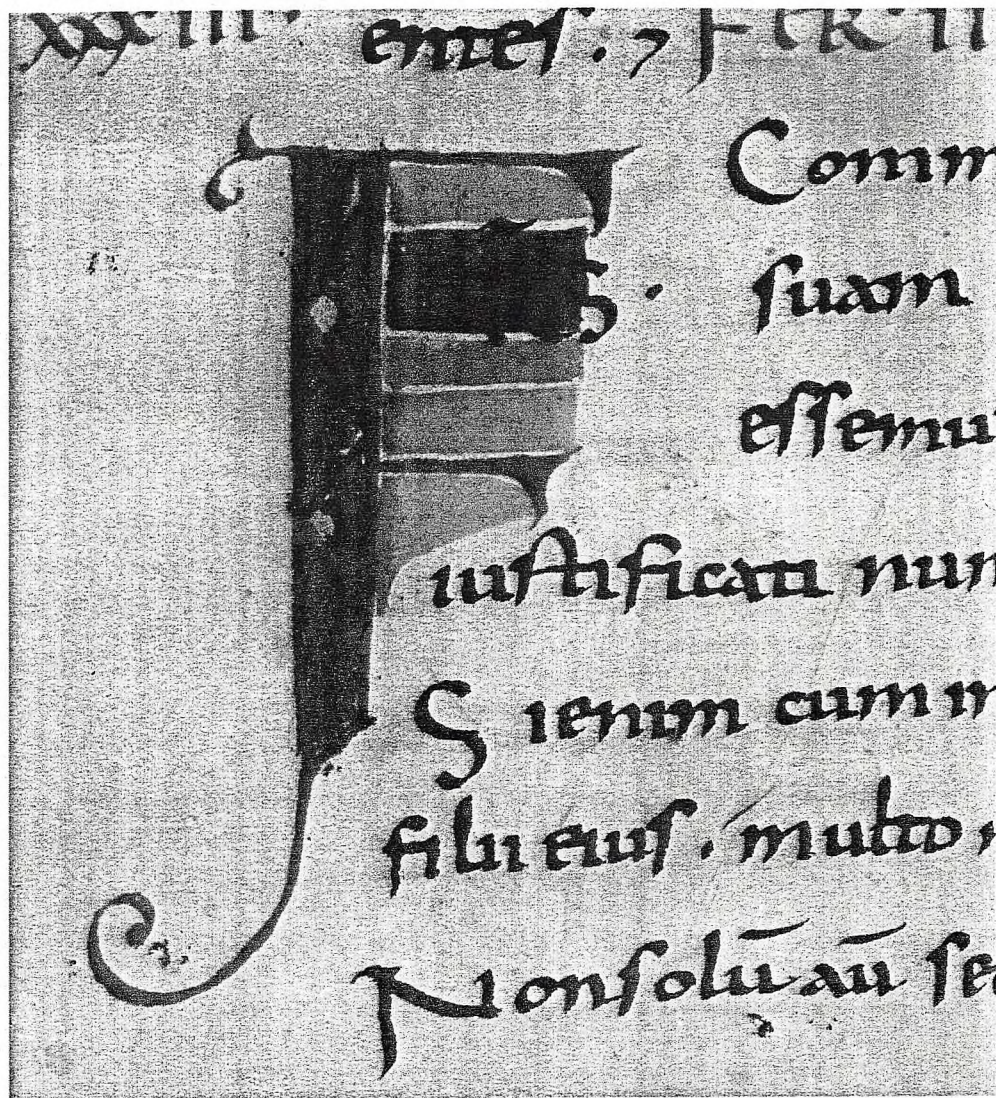 xxxiii· entes. 7 FER·II
F Comm
S · suam
essemu
iustificati nun
Sienim cum in
filii eius. multo
Non solū aū se